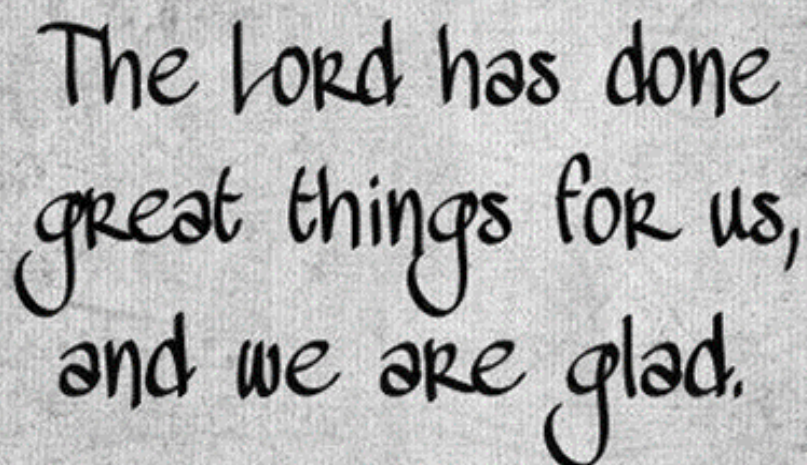 The Lord has done
great things for us,
and we are glad.